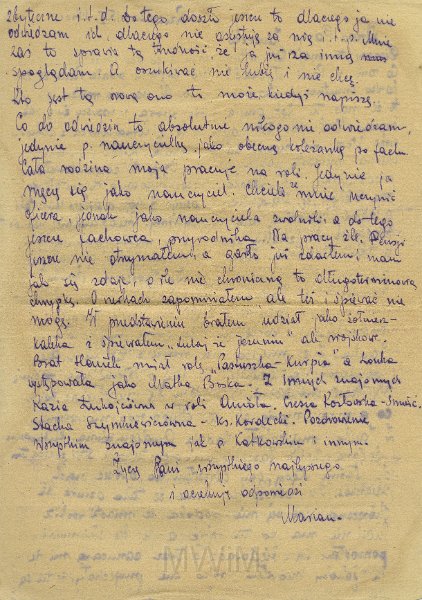 zbyteczne i.t.d. Do tego doszło jeszcze to dlaczego ja nie
odwiedzam ich, dlaczego nie asystuję za nią i.t.d. Mnie
zaś to sprawia tą trudność, że ja już za inną
spoglądam. A oszukiwać nie lubię i nie chcę.
Kto jest tą nową ono to może kiedyś napiszę.
Co do odwiedzin to absolutnie nikogo nie odwiedzam,
jedynie p. nauczycielkę jako obecną koleżankę po fachu.
Cała rodzina moja pracuje na roli. Jedynie ja
męczę się jako nauczyciel. Chcieli ze mnie uczynić
oficera jednak jako nauczyciela zwolnili a do tego
jeszcze fachowca przyrodnika. Na pracy źle. Pensji
jeszcze nie otrzymałem, a gardło już zdarłem i mam
jak się zdaje, o ile nie chroniczną to długoterminową
chrypkę. O nutach zapominałem, ale też i śpiewać nie
mogę. W przedstawieniu brałem udział jako żołnierz-
kaleka i śpiewałem "tutaj że jesienią" ale wojskow.
Brat Heniek miał rolę "Pastuszka-Kurpia" a Lonka
występowała jako Matka Boska. Z innych znajomych
Kazia w roli Anioła, Czesia Kozłowska - Śmierć,
Stacha Szymkiewiczówna - Ks. Kordecki. Pozdrowienie
wszystkim znajomym jak p. Kotkowskim i innym.
Życzę Pani wszystkiego najlepszego
i oczekuję odpowiedzi
Marian.
MWM